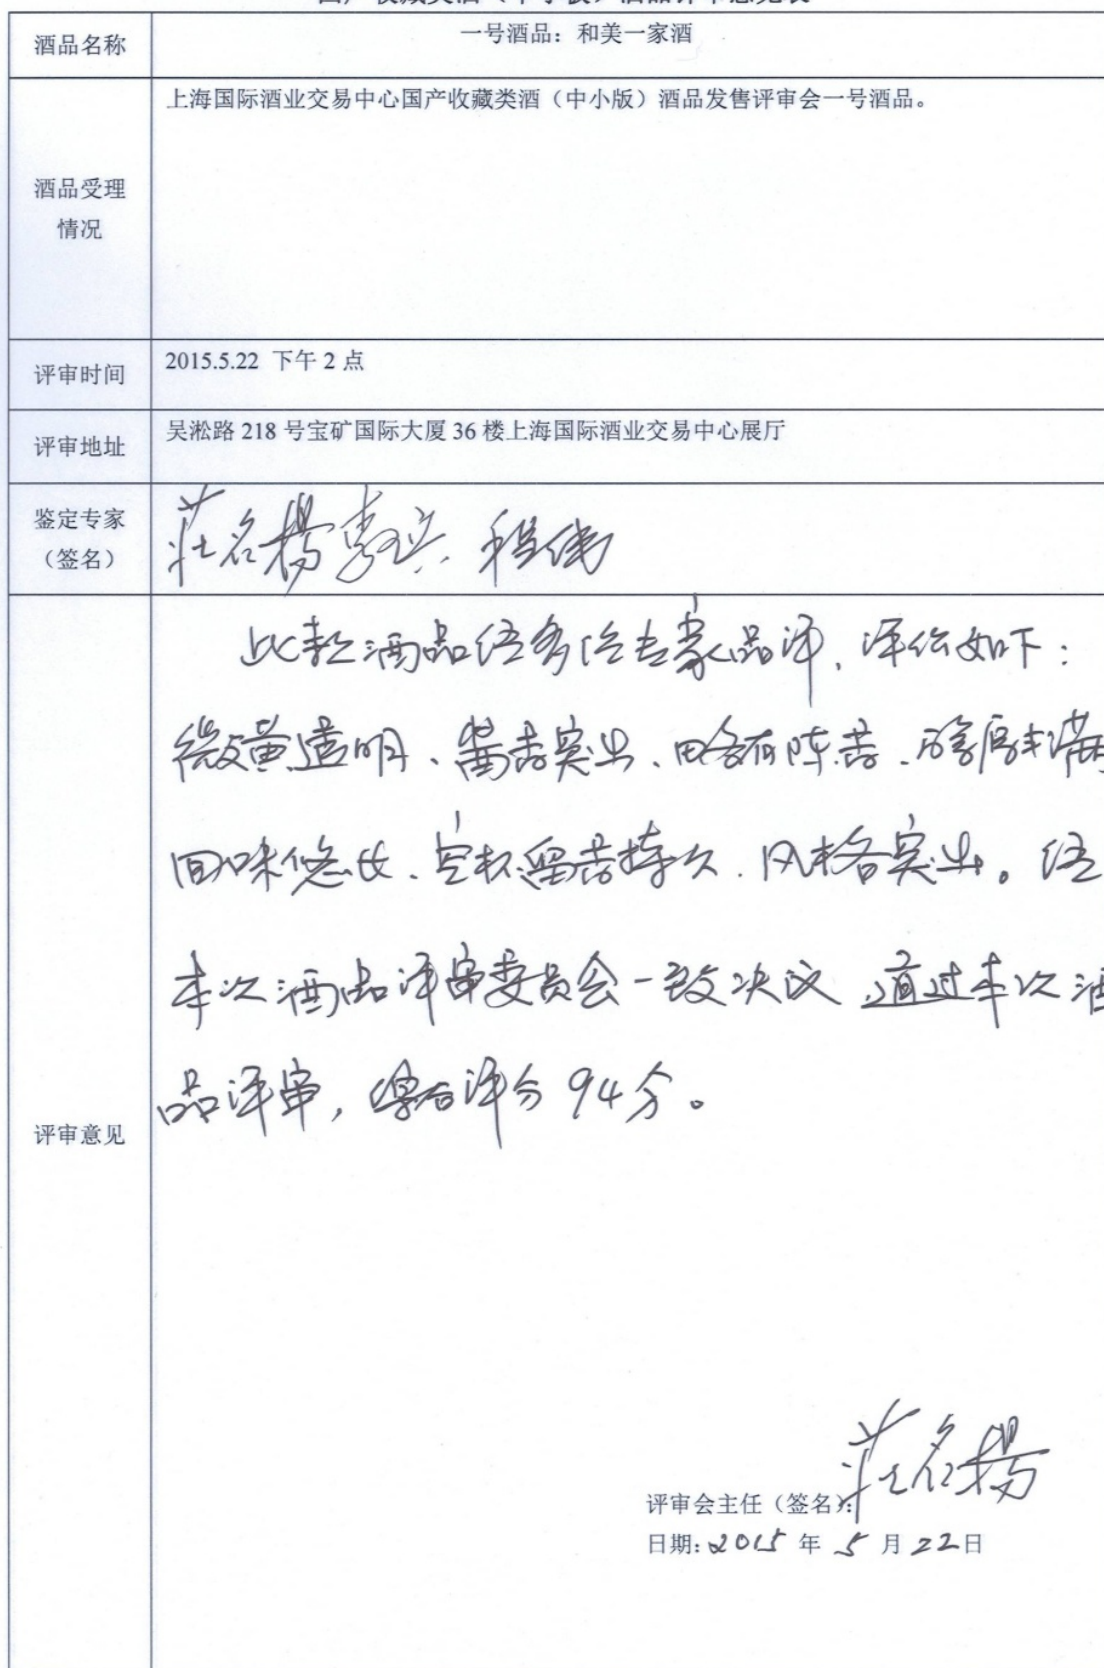 国产收藏类酒（中小板）酒品评审意见表
酒品名称
一号酒品：和美一家酒
酒品受理
情况
上海国际酒业交易中心国产收藏类酒（中小版）酒品发售评审会一号酒品。
评审时间
2015.5.22 下午 2 点
评审地址
吴淞路 218 号宝矿国际大厦 36 楼上海国际酒业交易中心展厅
鉴定专家
（签名）
莊名揚 程伟
评审意见
此款酒品经多位专家品评，评价如下：
微黄透明、酱香突出、略有陈香、醇厚丰满
回味悠长、空杯留香持久、风格突出。经
本次酒品评审委员会一致决议，通过本次酒
品评审，综合评分94分。
评审会主任（签名）：莊名揚
日期：2015 年 5 月 22日